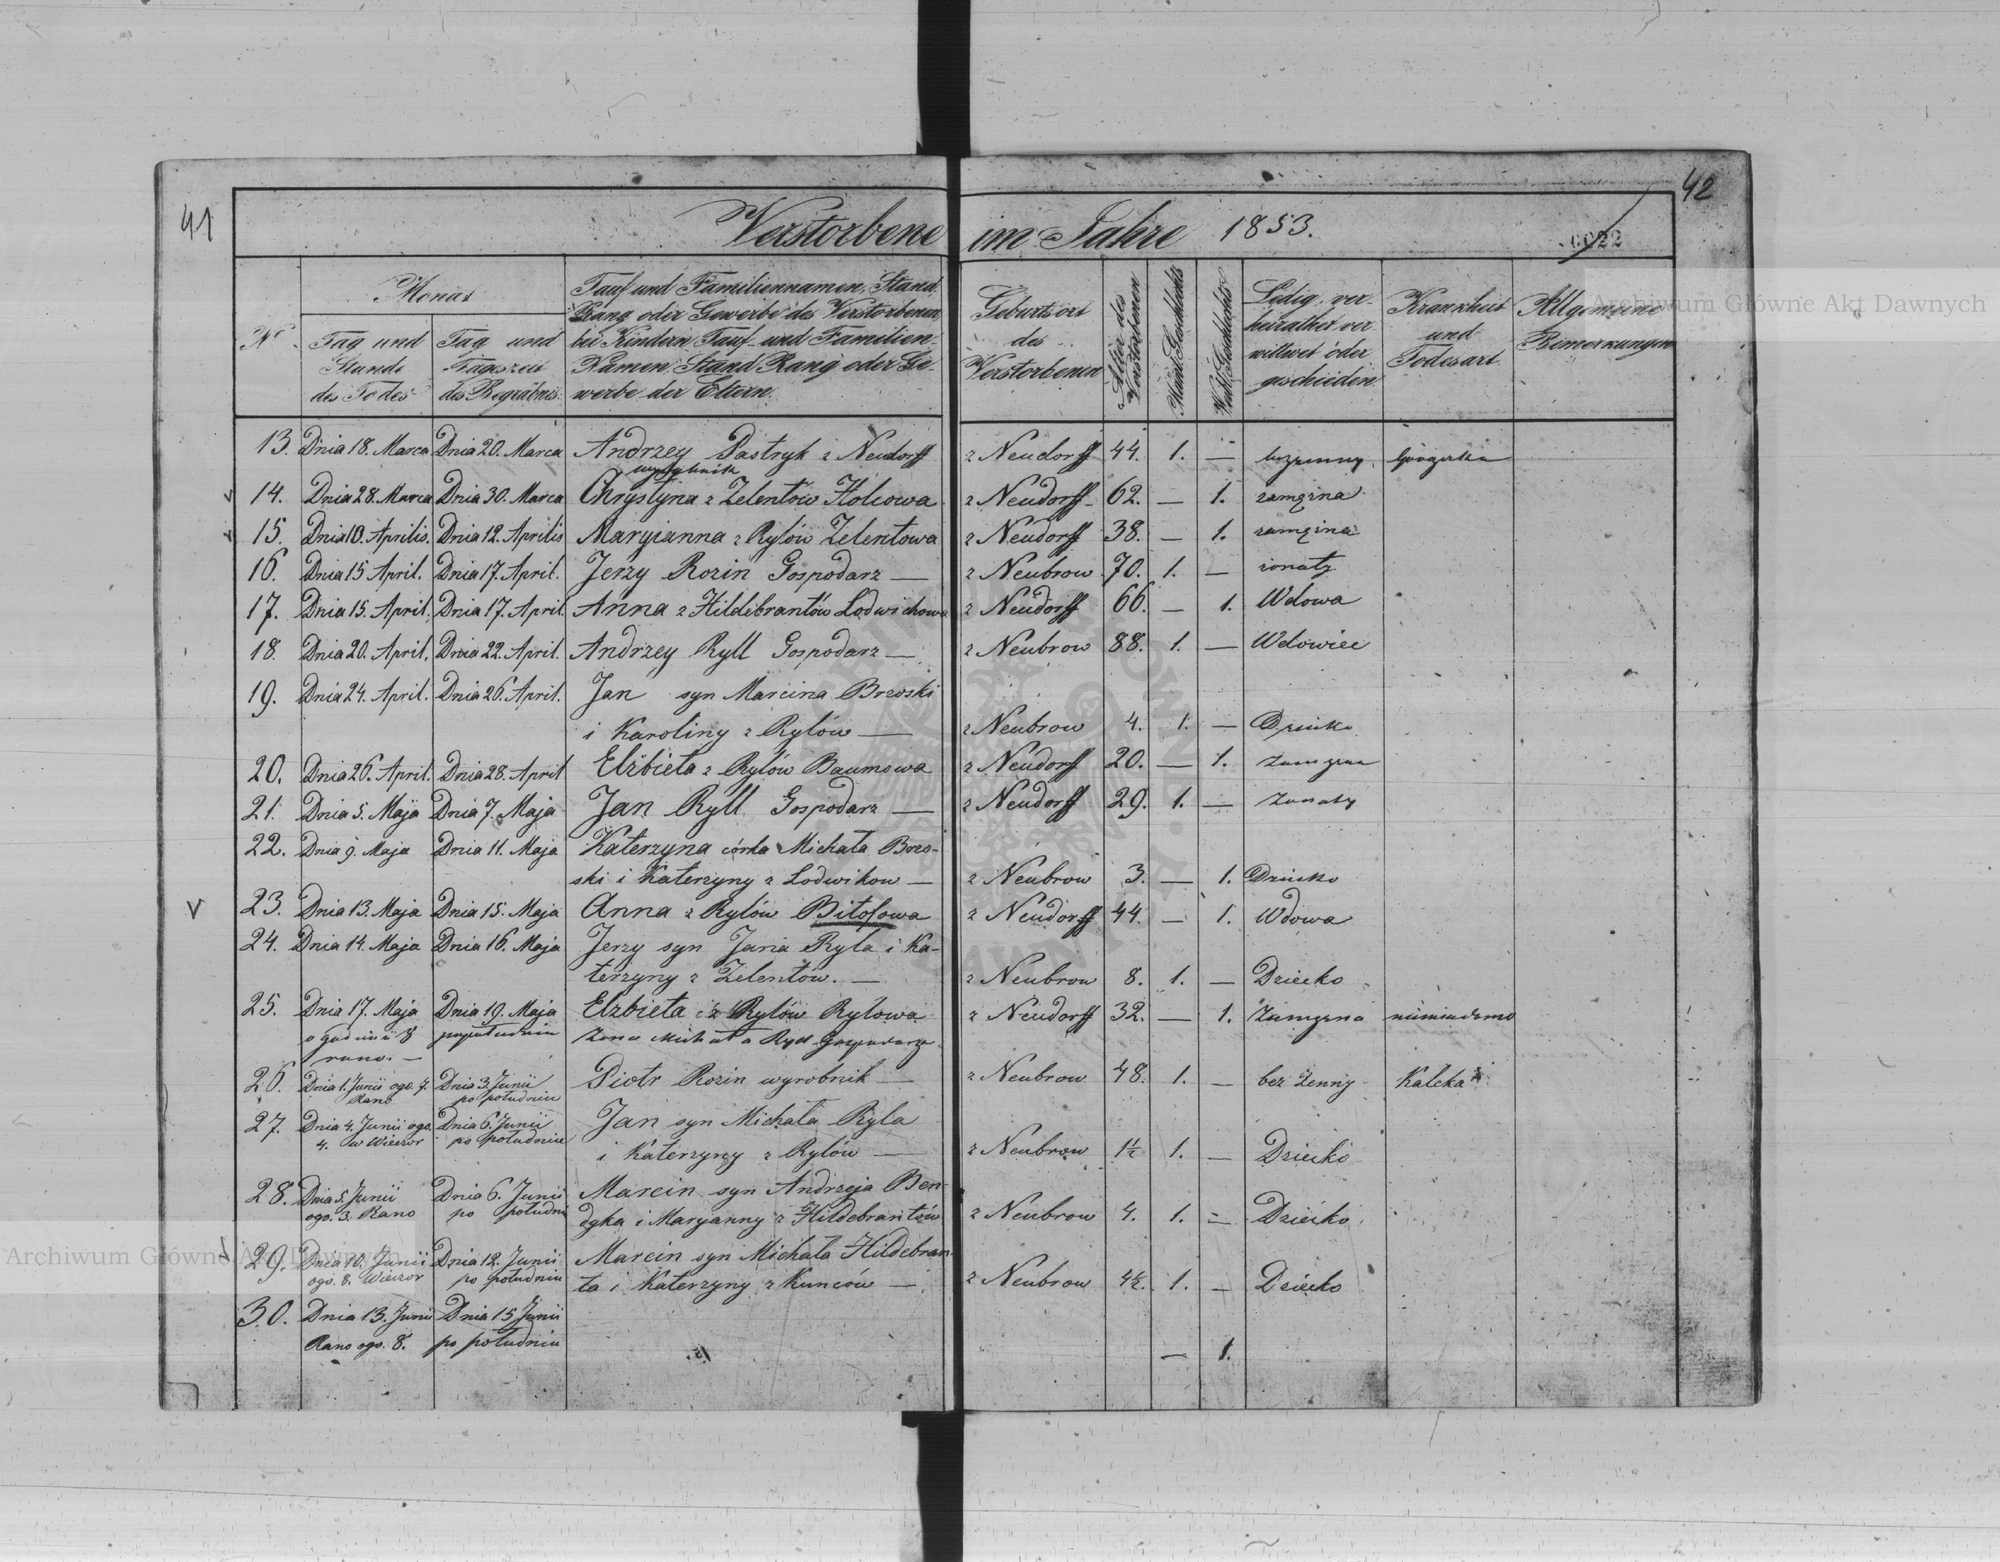 41
42
Verstorbene im Jahre 1853.
0022
Archiwum Główne Akt Dawnych
No.
Monat
Tag und Stunde des Todes
Tag und Tageszeit des Begräbnis
Tauf und Familiennamen, Stand
Rang oder Gewerbe des Verstorbenen
bei Kindern Tauf- und Familien-
Namen, Stand Rang oder Ge-
werbe der Eltern.
Geburtsort des Verstorbenen
Alter des Verstorbenen
Männl. Geschlechts
Weibl. Geschlechts
Ledig, ver-
heirathet ver-
wittwet oder
geschieden
Krankheit und Todesart
Allgemeine Bemerkungen
13. Dnia 18. Marca Dnia 20. Marca Andrzey Pastryk z Neudorff z Neudorff 44. 1. —
wyrobnik
14. Dnia 28. Marca Dnia 30. Marca Chrystyna z Zelentów Holcowa z Neudorff 62. — 1. zamęzna
15. Dnia 10. Aprilis. Dnia 12. Aprilis Maryianna z Rylów Zelentowa z Neudorff 38. — 1. zamęzna
16. Dnia 15 April. Dnia 17. April. Jerzy Rozin Gospodarz — z Neubrow 70. 1. — zonaty
17. Dnia 15. April. Dnia 17. April Anna z Hildebrantów Lodwichowa z Neudorff 66. — 1. Wdowa
18. Dnia 20. April. Dnia 22. April. Andrzey Ryll Gospodarz — z Neubrow 88. 1. — Wdowiec
19. Dnia 24. April. Dnia 26. April. Jan syn Marcina Brzoski
i Karoliny z Rylów — z Neubrow 4. 1. — Dziecko
20. Dnia 26. April. Dnia 28. April Elżbieta z Rylów Baumowa z Neudorff 20. — 1. zamęzna
21. Dnia 5. Maja Dnia 7. Maja Jan Ryll Gospodarz — z Neudorff 29. 1. — Zonaty
22. Dnia 9. Maja Dnia 11. Maja Katerzyna córka Michała Brzo-
ski i Katerzyny z Lodwikow — z Neubrow 3. — 1. Dziecko
V 23. Dnia 13. Maja Dnia 15. Maja Anna z Rylów Bitofowa z Neudorff 44. — 1. Wdowa
24. Dnia 14. Maja Dnia 16. Maja Jerzy syn Jana Ryla i Ka-
terzyny z Zelentów. — z Neubrow 8. 1. — Dziecko
25. Dnia 17. Maja Dnia 19. Maja Elzbieta z Rylów Rylowa z Neudorff 32. — 1. Zamęzna niewiadomo
o godzinie 8 popołudniu Zona Michała Ryll Gospodarza
rano. —
26. Dnia 1. Junii ogo. 7. Dnia 3. Junii Piotr Rozin wyrobnik — z Neubrow 48. 1. — bez Zenny Kaleka
Rano po południu
27. Dnia 4. Junii ogo. Dnia 6. Junii Jan syn Michała Ryla
4. w Wieczor po południu i Katerzyny z Rylów — z Neubrow 1½ 1. — Dziecko
28. Dnia 5. Junii Dnia 6. Junii Marcin syn Andrzeja Ben-
ogo. 3. Rano po południu dyka i Maryanny z Hildebrantów z Neubrow 4. 1. — Dziecko
29. Dnia 10. Junii Dnia 12. Junii Marcin syn Michała Hildebran-
ogo. 8. Wieczor po południu ta i Katerzyny z Kunców — z Neubrow 4½. 1. — Dziecko
Archiwum Główne Akt Dawnych
30. Dnia 13. Junii Dnia 15 Junii
Rano ogo. 8. po południu — 1.